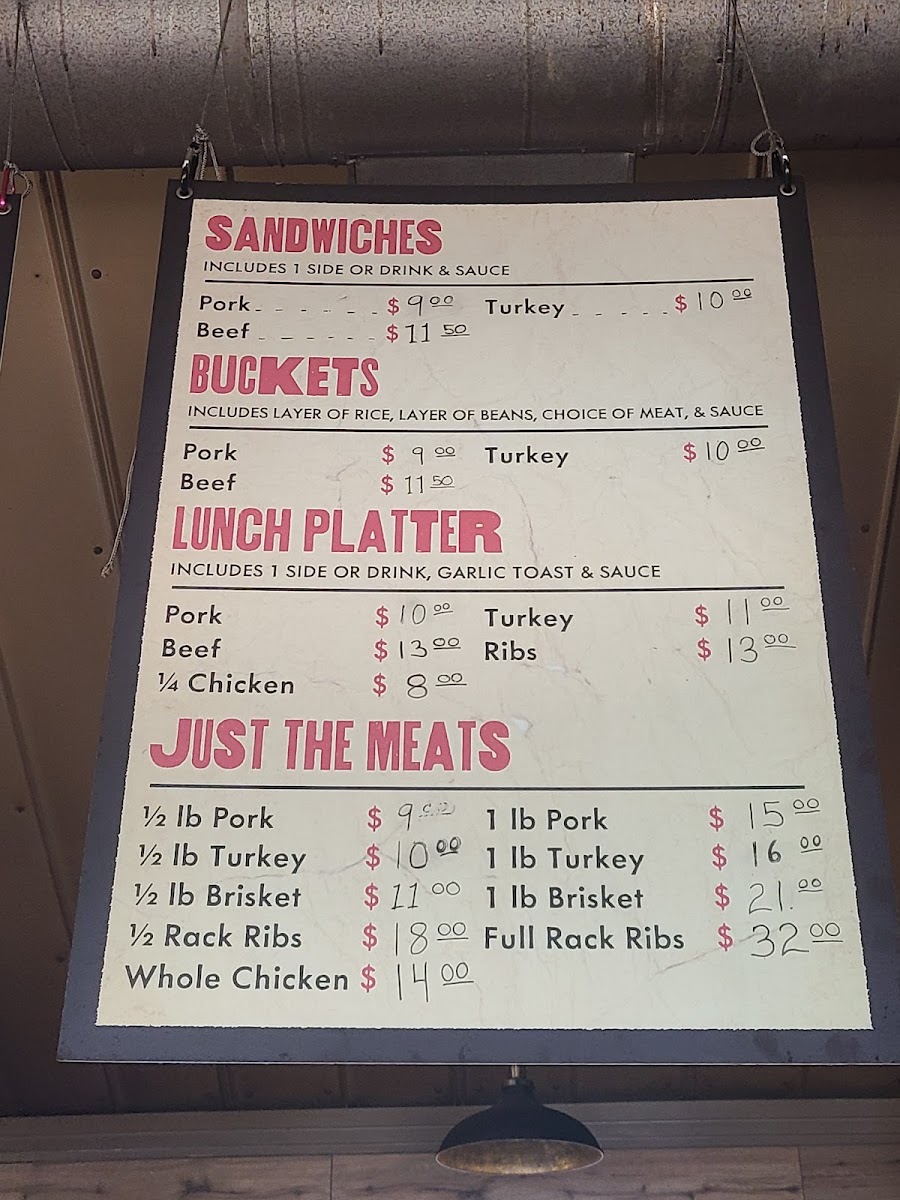 SANDWICHES
INCLUDES 1 SIDE OR DRINK & SAUCE
Pork $ 9 00 Turkey $ 10 00
Beef $ 11 50
BUCKETS
INCLUDES LAYER OF RICE, LAYER OF BEANS, CHOICE OF MEAT, & SAUCE
Pork $ 9 00 Turkey $ 10 00
Beef $ 11 50
LUNCH PLATTER
INCLUDES 1 SIDE OR DRINK, GARLIC TOAST & SAUCE
Pork $ 10 00 Turkey $ 11 00
Beef $ 13 00 Ribs $ 13 00
¼ Chicken $ 8 00
JUST THE MEATS
½ lb Pork $ 9 00 1 lb Pork $ 15 00
½ lb Turkey $ 10 00 1 lb Turkey $ 16 00
½ lb Brisket $ 11 00 1 lb Brisket $ 21. 00
½ Rack Ribs $ 18 00 Full Rack Ribs $ 32 00
Whole Chicken $ 14 00